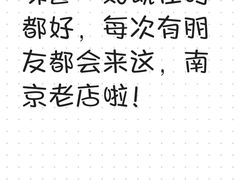 都好，每次有朋
友都会来这，南
京老店啦！